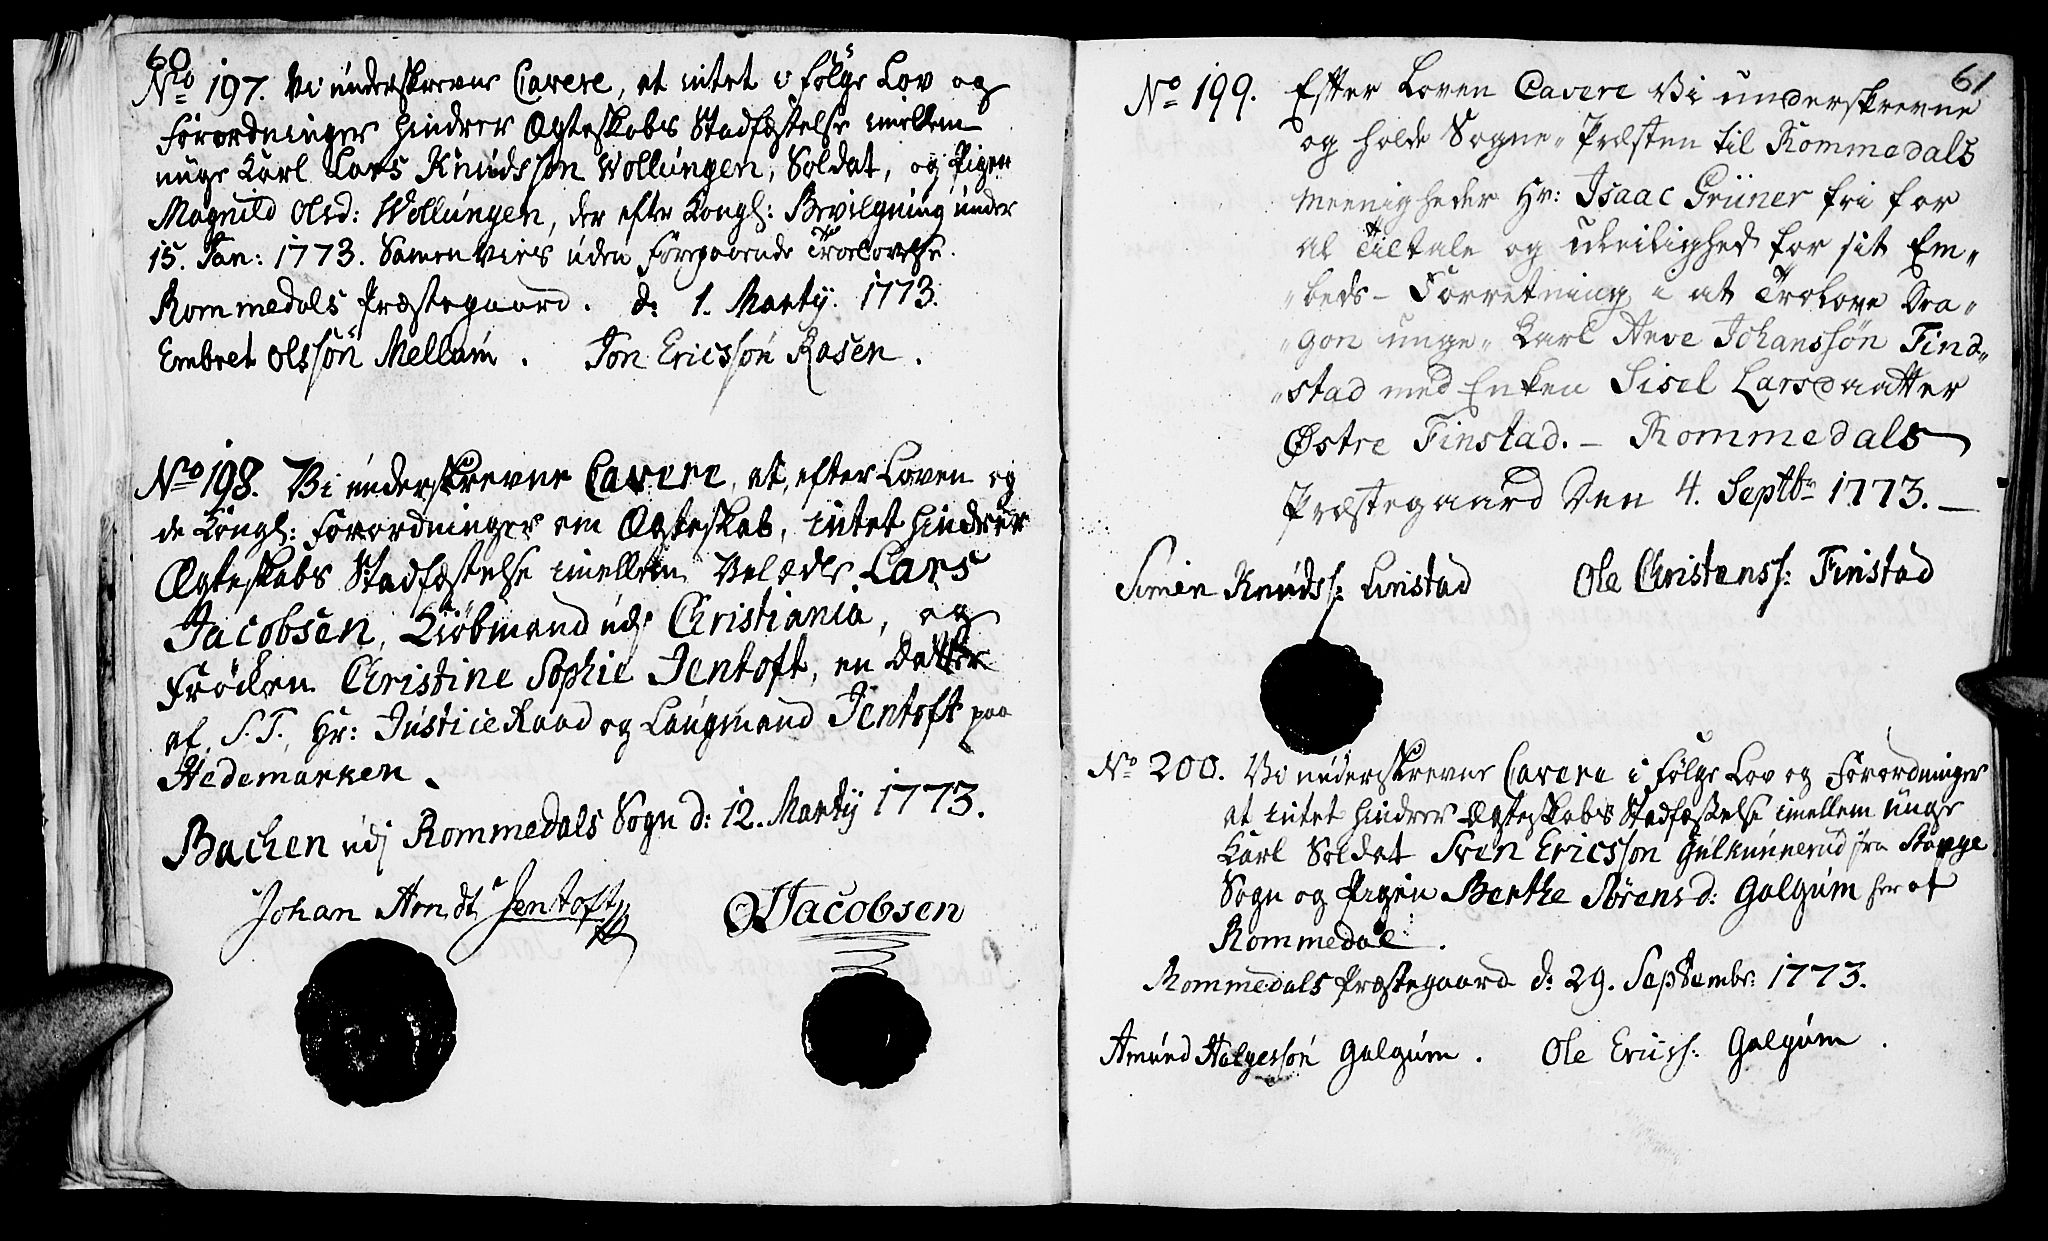 60
No 197. Vi underskrevne Cavere, at intet i følge Lov og
Forordninger hindrer Ægteskabs Stadfæstelse imellem
unge Karl Lars Knudssøn Wollungen, Soldat, og Pigen
Magnild Olsd: Wollungen, der efter Kongl: Bevilgning under
15. Jan: 1773. Samenvies uden foregaaende Troelovelse.
Rommedals Præstegaard. d: 1. Marty. 1773.
Embret Olssøn Mellum. Jon Ericssøn Rosen.
No 198. Vi underskrevne Cavere, at, efter Loven og
de Kongl: Forordninger om Ægteskab, intet hindrer
Ægteskabs Stadfæstelse imellem Velædle Lars
Jacobsen, Kiøbmand udj Christiania, og
Frøken Christine Sophie Jentoft, en Datter
af S. T. Hr: Justice Raad og Laugmand Jentoft paa
Hedemarken.
Bachen udj Rommedals Sogn d: 12. Marty 1773.
Johan Arndt Jentoft Jacobsen
61
No 199. Efter Loven Cavere Vi underskrevne
og holde Sogne-Præsten til Rommedals
Meenigheder Hr: Isaac Grüner fri for
al Tiltale og uleilighed for sit Em-
beds-Forretning i at Trolove Dra-
gon unge-Karl Arve Johanssøn Find-
stad med Enken Sisel Larsdaatter
Østre Finstad. - Rommedals
Præstegaard Den 4. Septbr 1773. -
Simen Knudss: Linstad Ole Christenss: Finstad
No 200. Vi underskrevne Cavere i følge Lov og Forordninger
at intet hindrer Ægteskabs Stadfæstelse imellem unge
Karl Soldat Sven Ericssøn Gulkunnerud fra Stange
Sogn og Pigen Berthe Sørensd: Galgum her af
Rommedal.
Rommedals Præstegaard d: 29. Septembr: 1773.
Amund Halgessøn Galgum. Ole Ericss: Galgum.